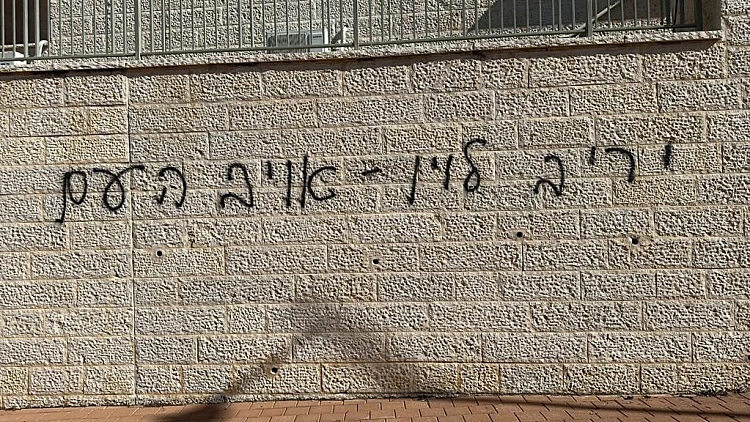 יריב לוין - אויב העם